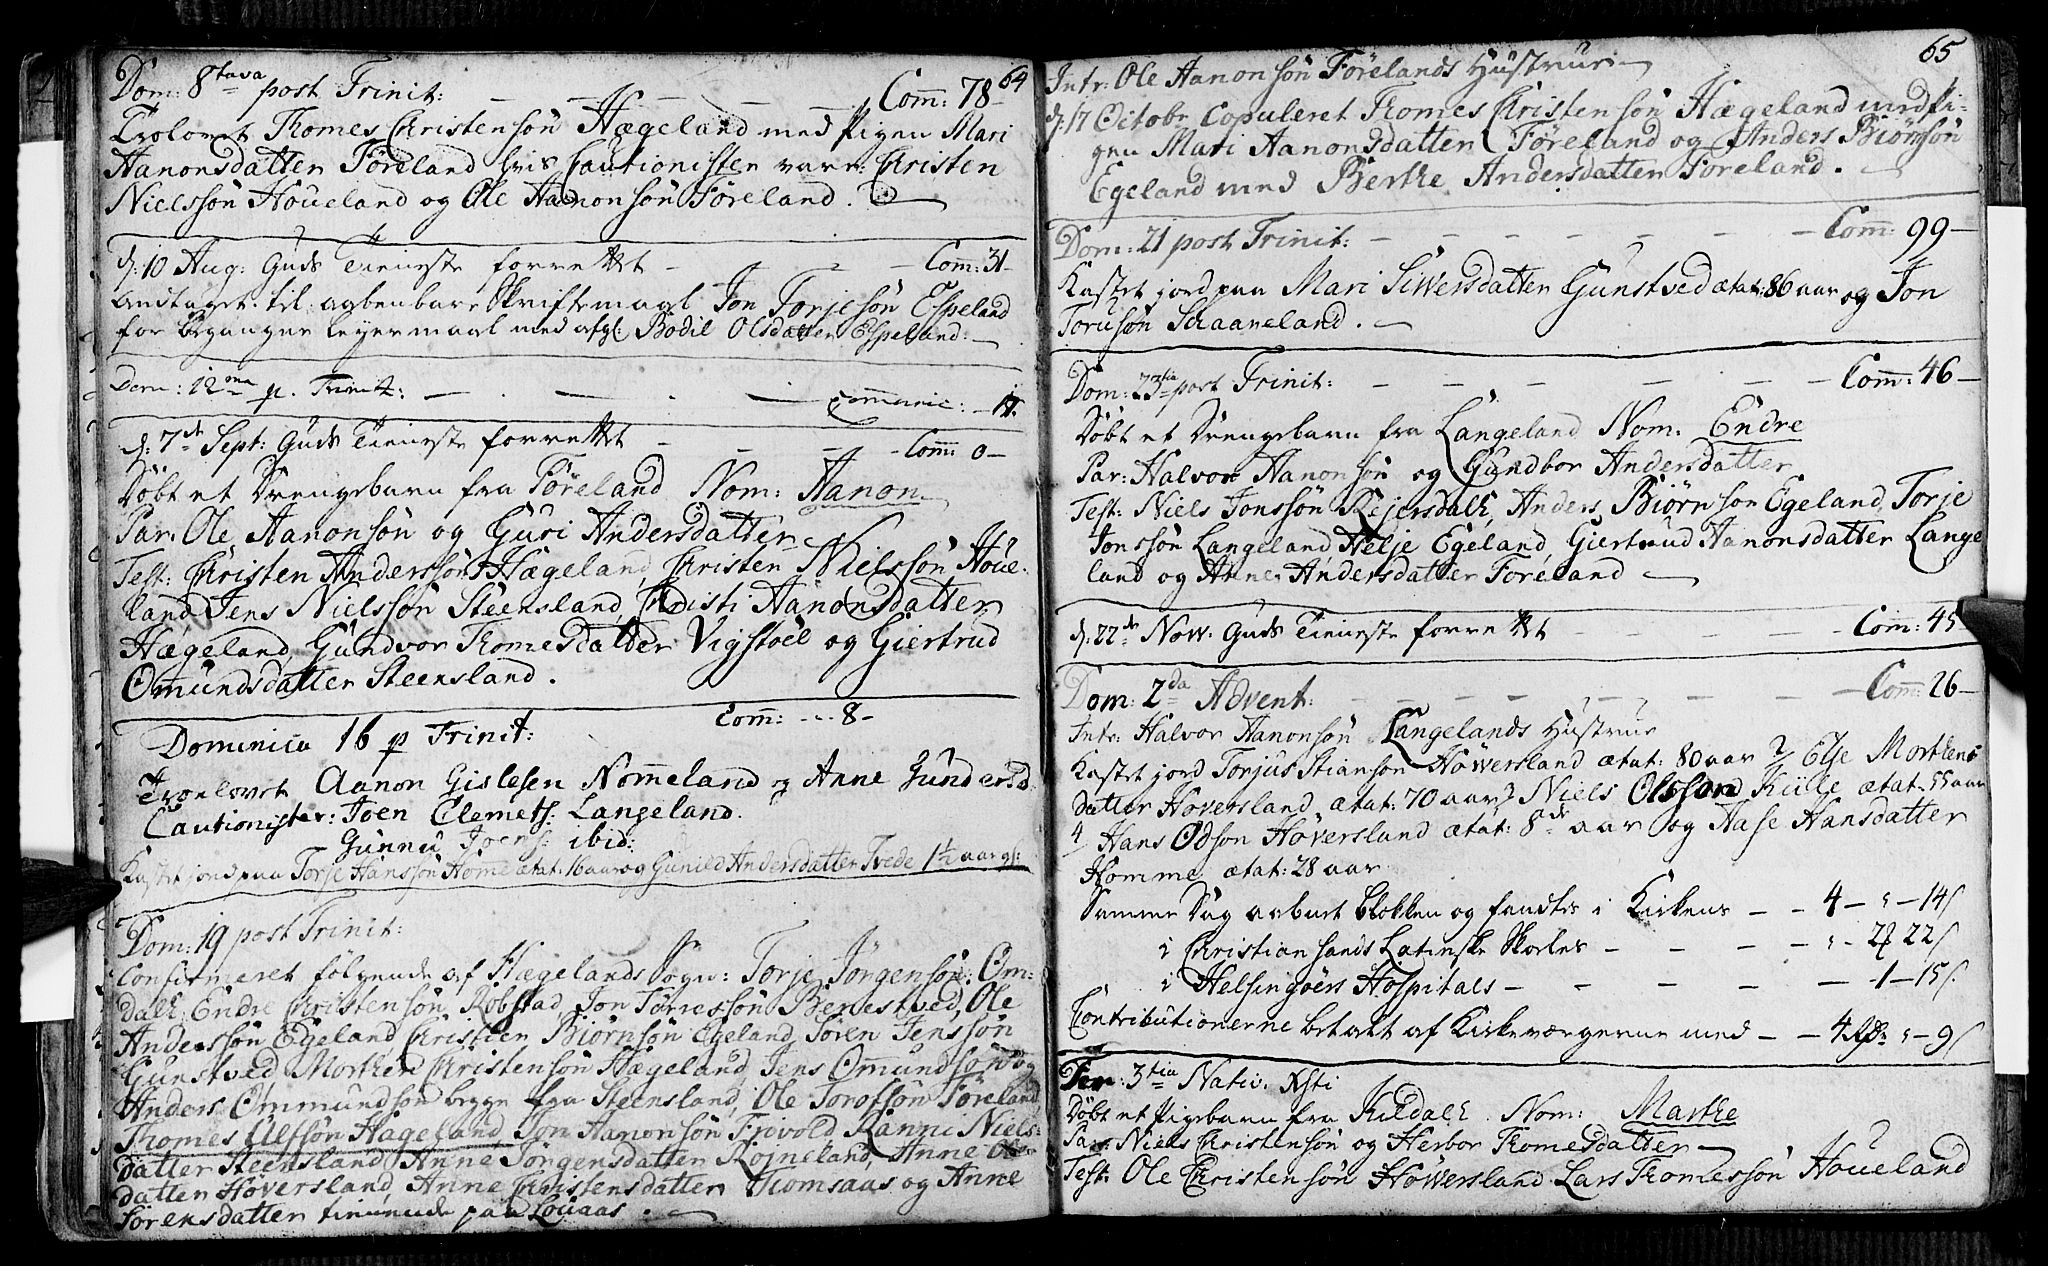 64
Dom: 8tava post Trinit: — — — — Com̄: 78-
Trolovet Thomes Christensön Hægeland med Pigen Mari
Aanonsdatter Föreland hvis Cautionister vare: Christen
Nielssön Höueland og Ole Aanonsön Föreland.
d: 10 Aug: Guds Tieneste forrettet - - - - Com̄: 31-
Andtaget til aabenbare Skriftemaal Jon Torjesön Espeland
for begangne leyermaal med Bodil Olsdatter Espeland.
Dom: 12ma p. Trinit: — — — — com̄unic: - 17.
d: 7de Sept: Guds Tieneste forrettet - - - - Com̄: 0-
Döbt et Drengebarn fra Föreland Nom: Aanon
Par: Ole Aanonsön og Guri Andersdatter
Test: Christen Anderssön Hægeland, Christen Nielssön Höue-
land, Jens Nielssön Steensland, Christi Aanonsdatter
Hægeland, Gundvor Thomesdatter Vigstöel og Giertrud
Om̄undsdatter Steensland.
Dominica 16 p Trinit: Com̄: --- 8-
Troelovet Aanon Gislesen Nom̄eland og Anne Gundersd.
Cautionister: Joen Clemets: Langeland.
Gunnu Joens: ibid:
Kastet jord paa Torje Hanssön Home ætat: 16 aar og Gunild Andersdatter Tvede 1½ aar gl:
Dom: 19 post Trinit:
Confirmeret fölgende af Hægelands Sogn: Torje Jörgensön Om-
dall, Endre Christensön Robstad, Jon Törressön Benestved, Ole
Anderssön Egeland, Christen Biörnsön Egeland, Sören Jenssön
Gunstved, Morthen Christensön Hægeland, Jens Om̄undsön og
Anders Ommundsön begge fra Steensland, Ole Torofsön Föreland,
Thomes Ulfsön Hageland, Jon Aanonsön Frivold, Ranni Niels-
datter Steensland, Anne Jörgensdatter Röineland, Anne Ols-
datter Höversland, Anne Christensdatter Tiomsaas og Anne
Sörensdatter tienende paa Louaas.
65
Intr: Ole Aanonsön Förelands Hustrue
d: 17 Octobr Copuleret Thomes Christensön Hægeland med Pi-
gen Mari Aanonsdatter Föreland og Anders Biörnsön
Egeland med Berthe Andersdatter Föreland.
Dom: 21 post Trinit: — — — — Com̄: 99-
Kastet jord paa Mari Siwersdatter Gunstved ætat: 86 aar og Jon
Torusön Schaaneland.
Dom: 23tia post Trinit: — — — — Com̄: 46-
Döbt et Drengebarn fra Langeland Nom. Endre
Par: Halvor Aanonsön og Gundbor Andersdatter
Test: Niels Jonssön Rejersdall, Anders Biörnson Egeland, Torje
Jonssön Langeland, Helje Egeland, Giertrud Aanonsdatter Lange
land og Anne Andersdatter Föreland
d: 22de Now: Guds Tieneste forrettet — — — — Com: 45-
Dom: 2da Advent: — — — — Com̄: 26-
Intr: Halvor Aanonsön Langelands Hustrue
Kastet jord Torjus Stianson Höwersland ætat: 80 aar 2/ Else Morthens
datter Höversland ætat: 70 aar 3/ Niels Olsson Kiile ætat. 55 aar
4/ Hans Odson Höversland ætat: 8de aar og Aase Hansdatter
Homme ætat: 28 aar
Samme Dag aabnet blokken og fandtes i Kirkens — — 4 - " - 14 s
i Christiansands Latinske Skoeles — — — " - 2 22 s
i Helsingöers Hospitals — — — - 1 - 15 s.
Contributionerne betalt af Kirkeværgerne med — — 4 Rd: " - 9 s
Fer: 3tia Nativ. Xsti
Döbt et Pigebarn fra Kildall. Nom: Marthe
Par: Niels Christensön og Herbor Thomesdatter
Test: Ole Christensön Höwersland Lars Thomessön Höueland